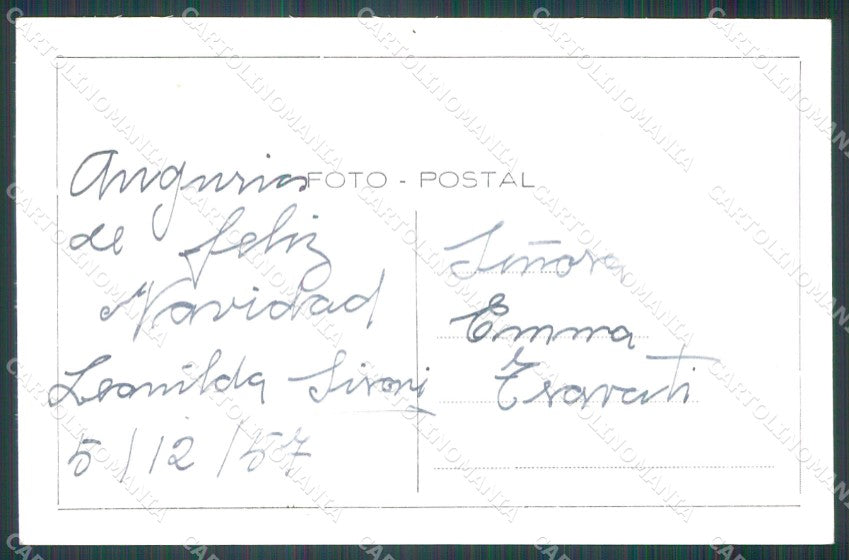 FOTO - POSTAL
Angurios
de feliz
Navidad
Leonilda Sironi
5/12/57
Señora
Emma
Travati
CARTOLINOMANIA